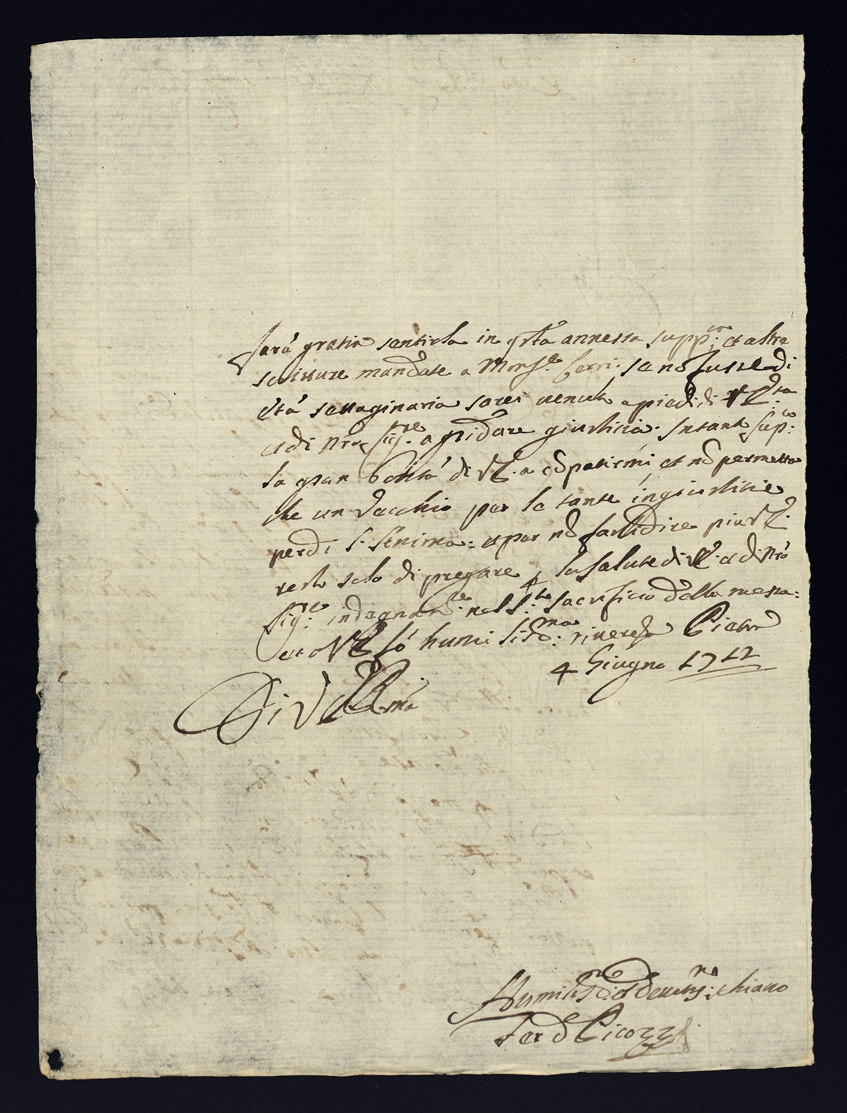 sarà gratia sentirla in q.sta annessa supp.ca et altre
scritture mandate a Mons.e ferri: se nõ fusse di
età settaginaria sarei venuto a piedi di V E
et di Nro Sig.re a gridare giustitia. Intanto sup.co
la gran bontà di V E. a cõpatirmi et nõ permetta
che un vecchio per le tante ingiustitie
perdi : et per nõ fastidire più V E.
resto solo di pregare la salute di V E. et di Nro
Sig.re indegnam.te nel S.to sacrifitio della messa:
et a V E fo humilis.ma riverẽza
4 Giugno 1712
Di V E Ill.ma
Humilis.o et devotis.mo schiavo
Ferd.o Cicozzi